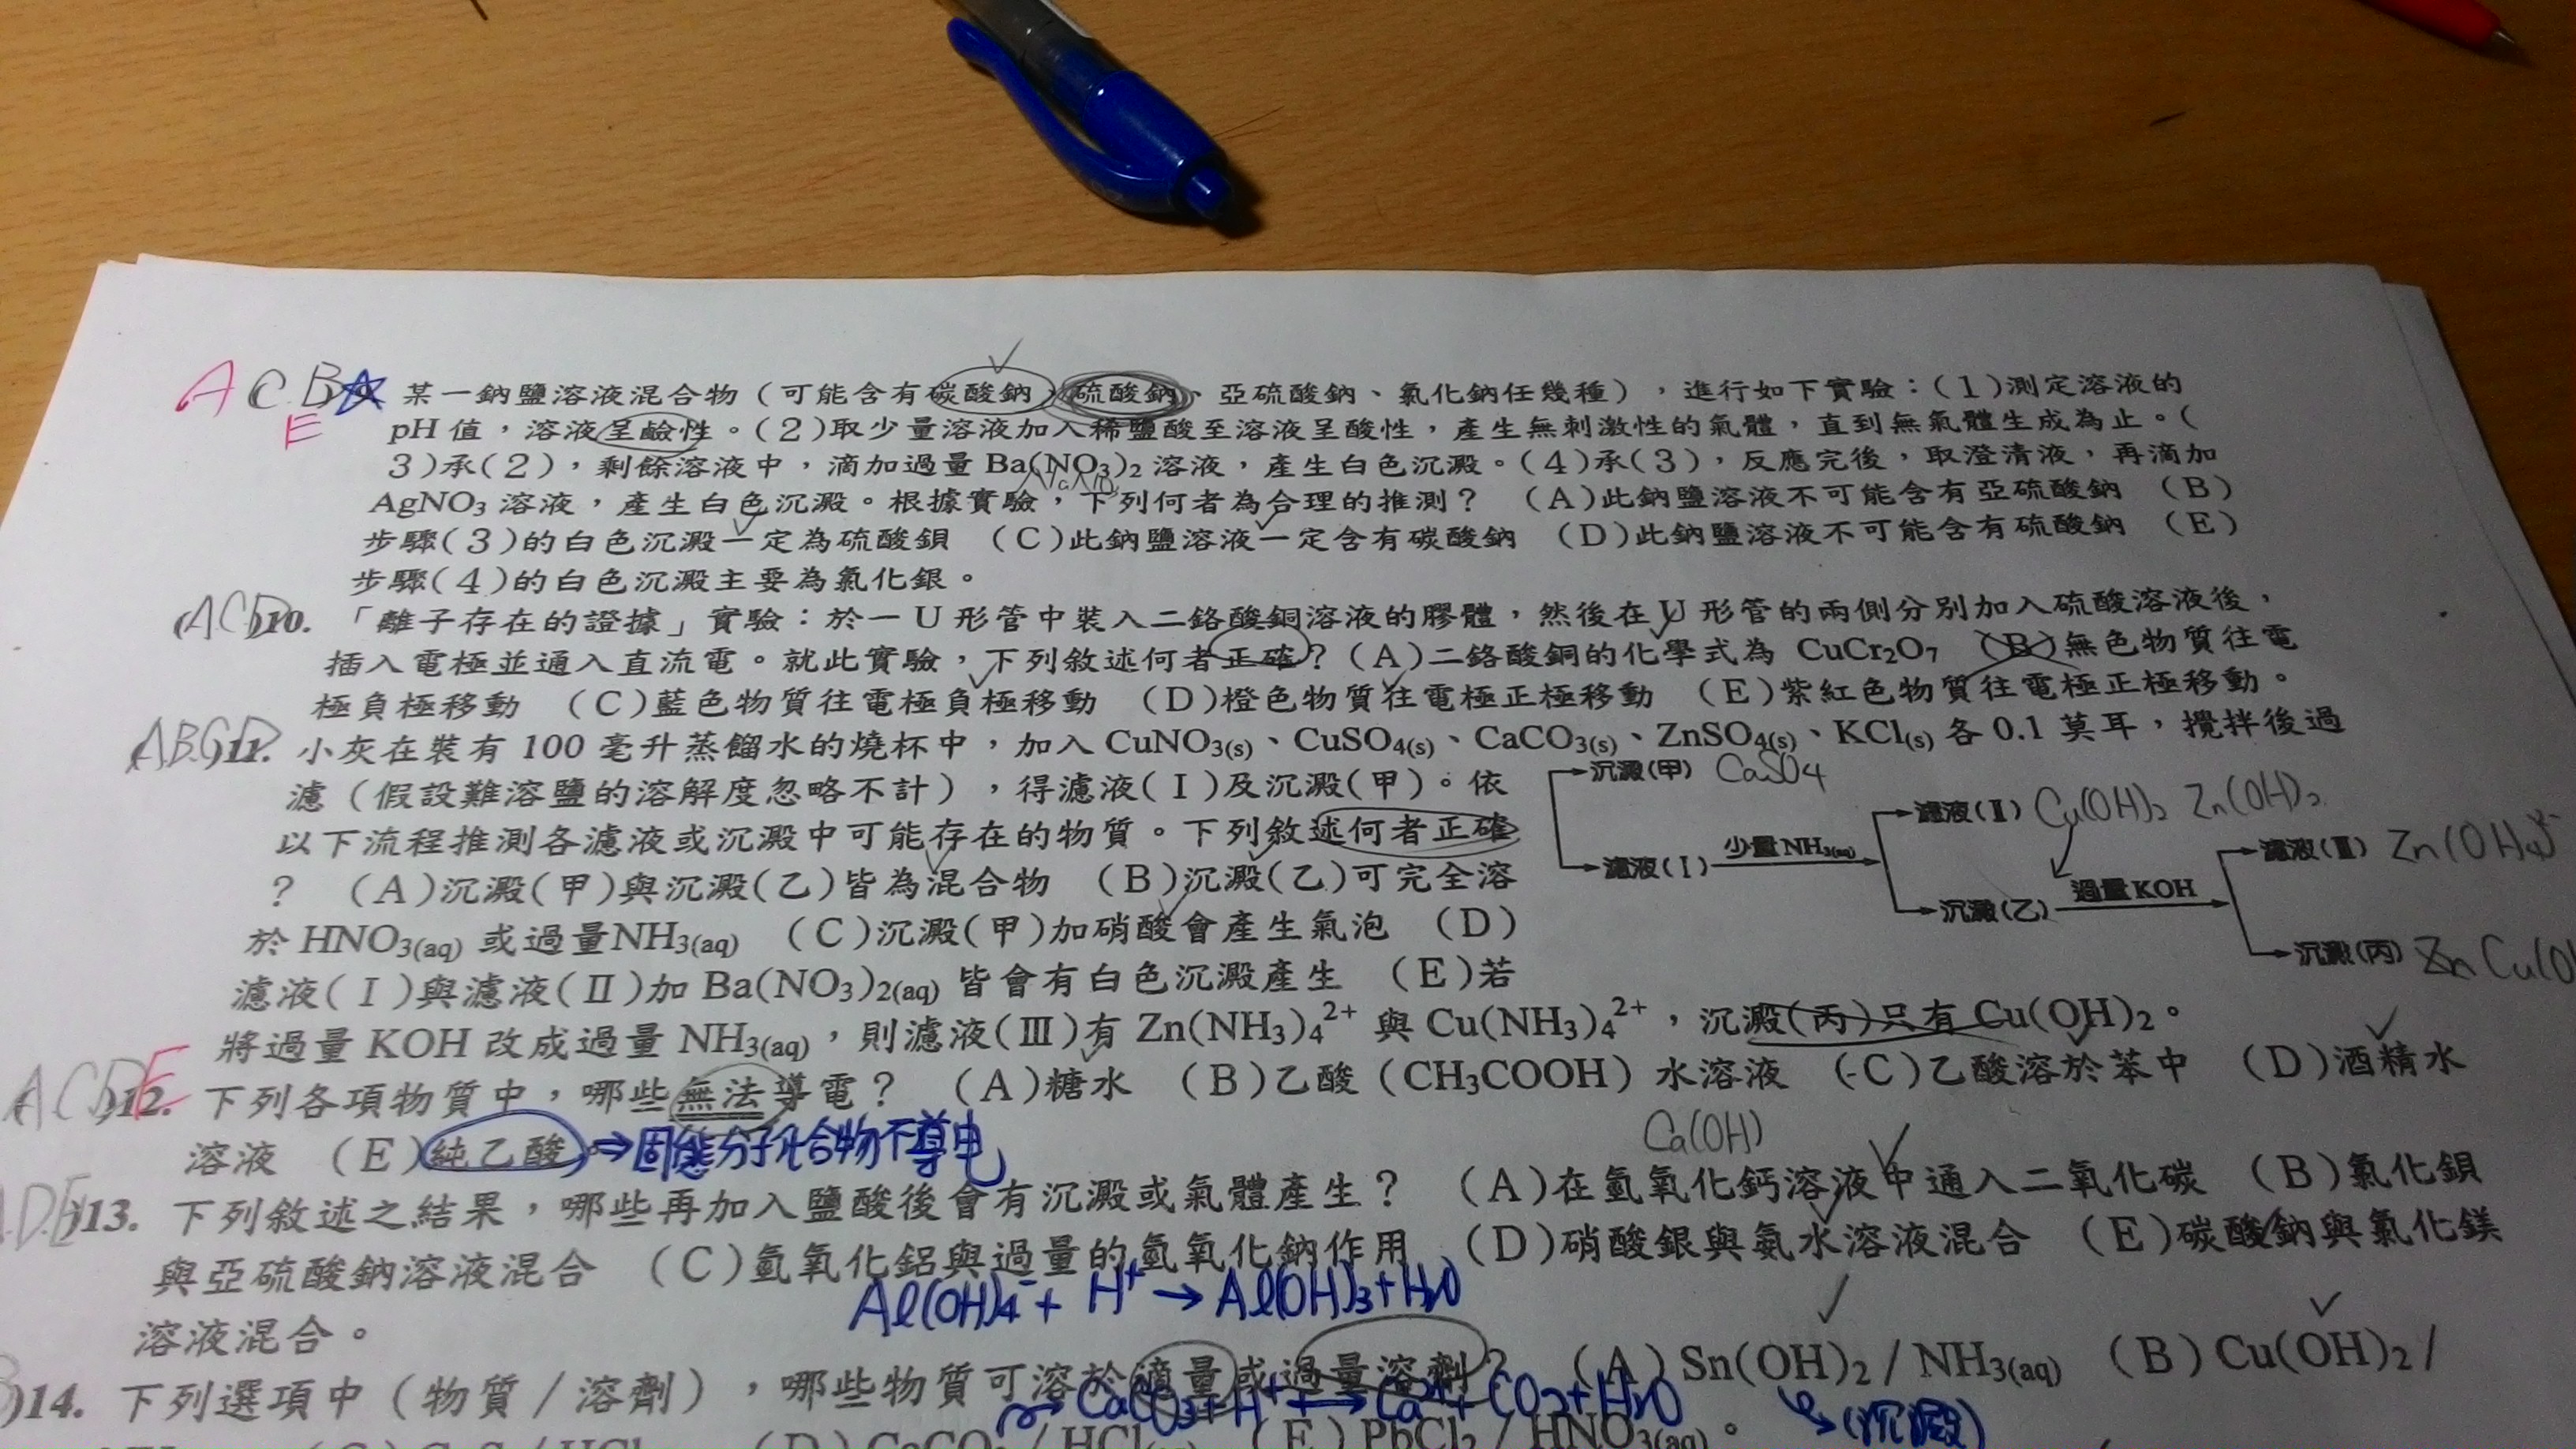 A C B E
某一鈉鹽溶液混合物（可能含有碳酸鈉、硫酸鈉、亞硫酸鈉、氯化鈉任幾種），進行如下實驗：(1)測定溶液的
pH值，溶液呈鹼性。(2)取少量溶液加入稀鹽酸至溶液呈酸性，產生無刺激性的氣體，直到無氣體生成為止。(
3)承(2)，剩餘溶液中，滴加過量Ba(NO₃)₂溶液，產生白色沉澱。(4)承(3)，反應完後，取澄清液，再滴加
AgNO₃溶液，產生白色沉澱。根據實驗，下列何者為合理的推測？ (A)此鈉鹽溶液不可能含有亞硫酸鈉 (B)
步驟(3)的白色沉澱一定為硫酸鋇 (C)此鈉鹽溶液一定含有碳酸鈉 (D)此鈉鹽溶液不可能含有硫酸鈉 (E)
步驟(4)的白色沉澱主要為氯化銀。
(ACD)10. 「離子存在的證據」實驗：於一U形管中裝入二鉻酸銅溶液的膠體，然後在U形管的兩側分別加入硫酸溶液後，
插入電極並通入直流電。就此實驗，下列敘述何者正確？(A)二鉻酸銅的化學式為 CuCr₂O₇ (B)無色物質往電
極負極移動 (C)藍色物質往電極負極移動 (D)橙色物質往電極正極移動 (E)紫紅色物質往電極正極移動。
(ABCD)11. 小灰在裝有100毫升蒸餾水的燒杯中，加入CuNO₃(s)、CuSO₄(s)、CaCO₃(s)、ZnSO₄(s)、KCl(s)各0.1莫耳，攪拌後過
濾（假設難溶鹽的溶解度忽略不計），得濾液(Ⅰ)及沉澱(甲)。依
以下流程推測各濾液或沉澱中可能存在的物質。下列敘述何者正確
？ (A)沉澱(甲)與沉澱(乙)皆為混合物 (B)沉澱(乙)可完全溶
於HNO₃(aq)或過量NH₃(aq) (C)沉澱(甲)加硝酸會產生氣泡 (D)
濾液(Ⅰ)與濾液(Ⅱ)加Ba(NO₃)₂(aq)皆會有白色沉澱產生 (E)若
將過量KOH改成過量NH₃(aq)，則濾液(Ⅲ)有Zn(NH₃)₄²⁺與Cu(NH₃)₄²⁺，沉澱(丙)只有Cu(OH)₂。
沉澱(甲) CaSO₄
濾液(Ⅱ) Cu(OH)₂ Zn(OH)₂
濾液(Ⅰ) 少量NH₃(aq)
濾液(Ⅲ) Zn(OH)₄²⁻
沉澱(乙) 過量KOH
沉澱(丙) Cu(O
ACDE)12. 下列各項物質中，哪些無法導電？ (A)糖水 (B)乙酸（CH₃COOH）水溶液 (C)乙酸溶於苯中 (D)酒精水
溶液 (E)純乙酸 ⇒固態分子化合物不導電
Ca(OH)
A.D.E)13. 下列敘述之結果，哪些再加入鹽酸後會有沉澱或氣體產生？ (A)在氫氧化鈣溶液中通入二氧化碳 (B)氯化鋇
與亞硫酸鈉溶液混合 (C)氫氧化鋁與過量的氫氧化鈉作用 (D)硝酸銀與氨水溶液混合 (E)碳酸鈉與氯化鎂
溶液混合。
Al(OH)₄⁻ + H⁺ → Al(OH)₃ + H₂O
)14. 下列選項中（物質／溶劑），哪些物質可溶於適量或過量溶劑？ (A) Sn(OH)₂ / NH₃(aq) (B) Cu(OH)₂ /
CaCO₃ + H⁺ → Ca²⁺ + CO₂ + H₂O
(沉澱)
(D) CaCO₃ / HCl (E) PbCl₂ / HNO₃(aq)。